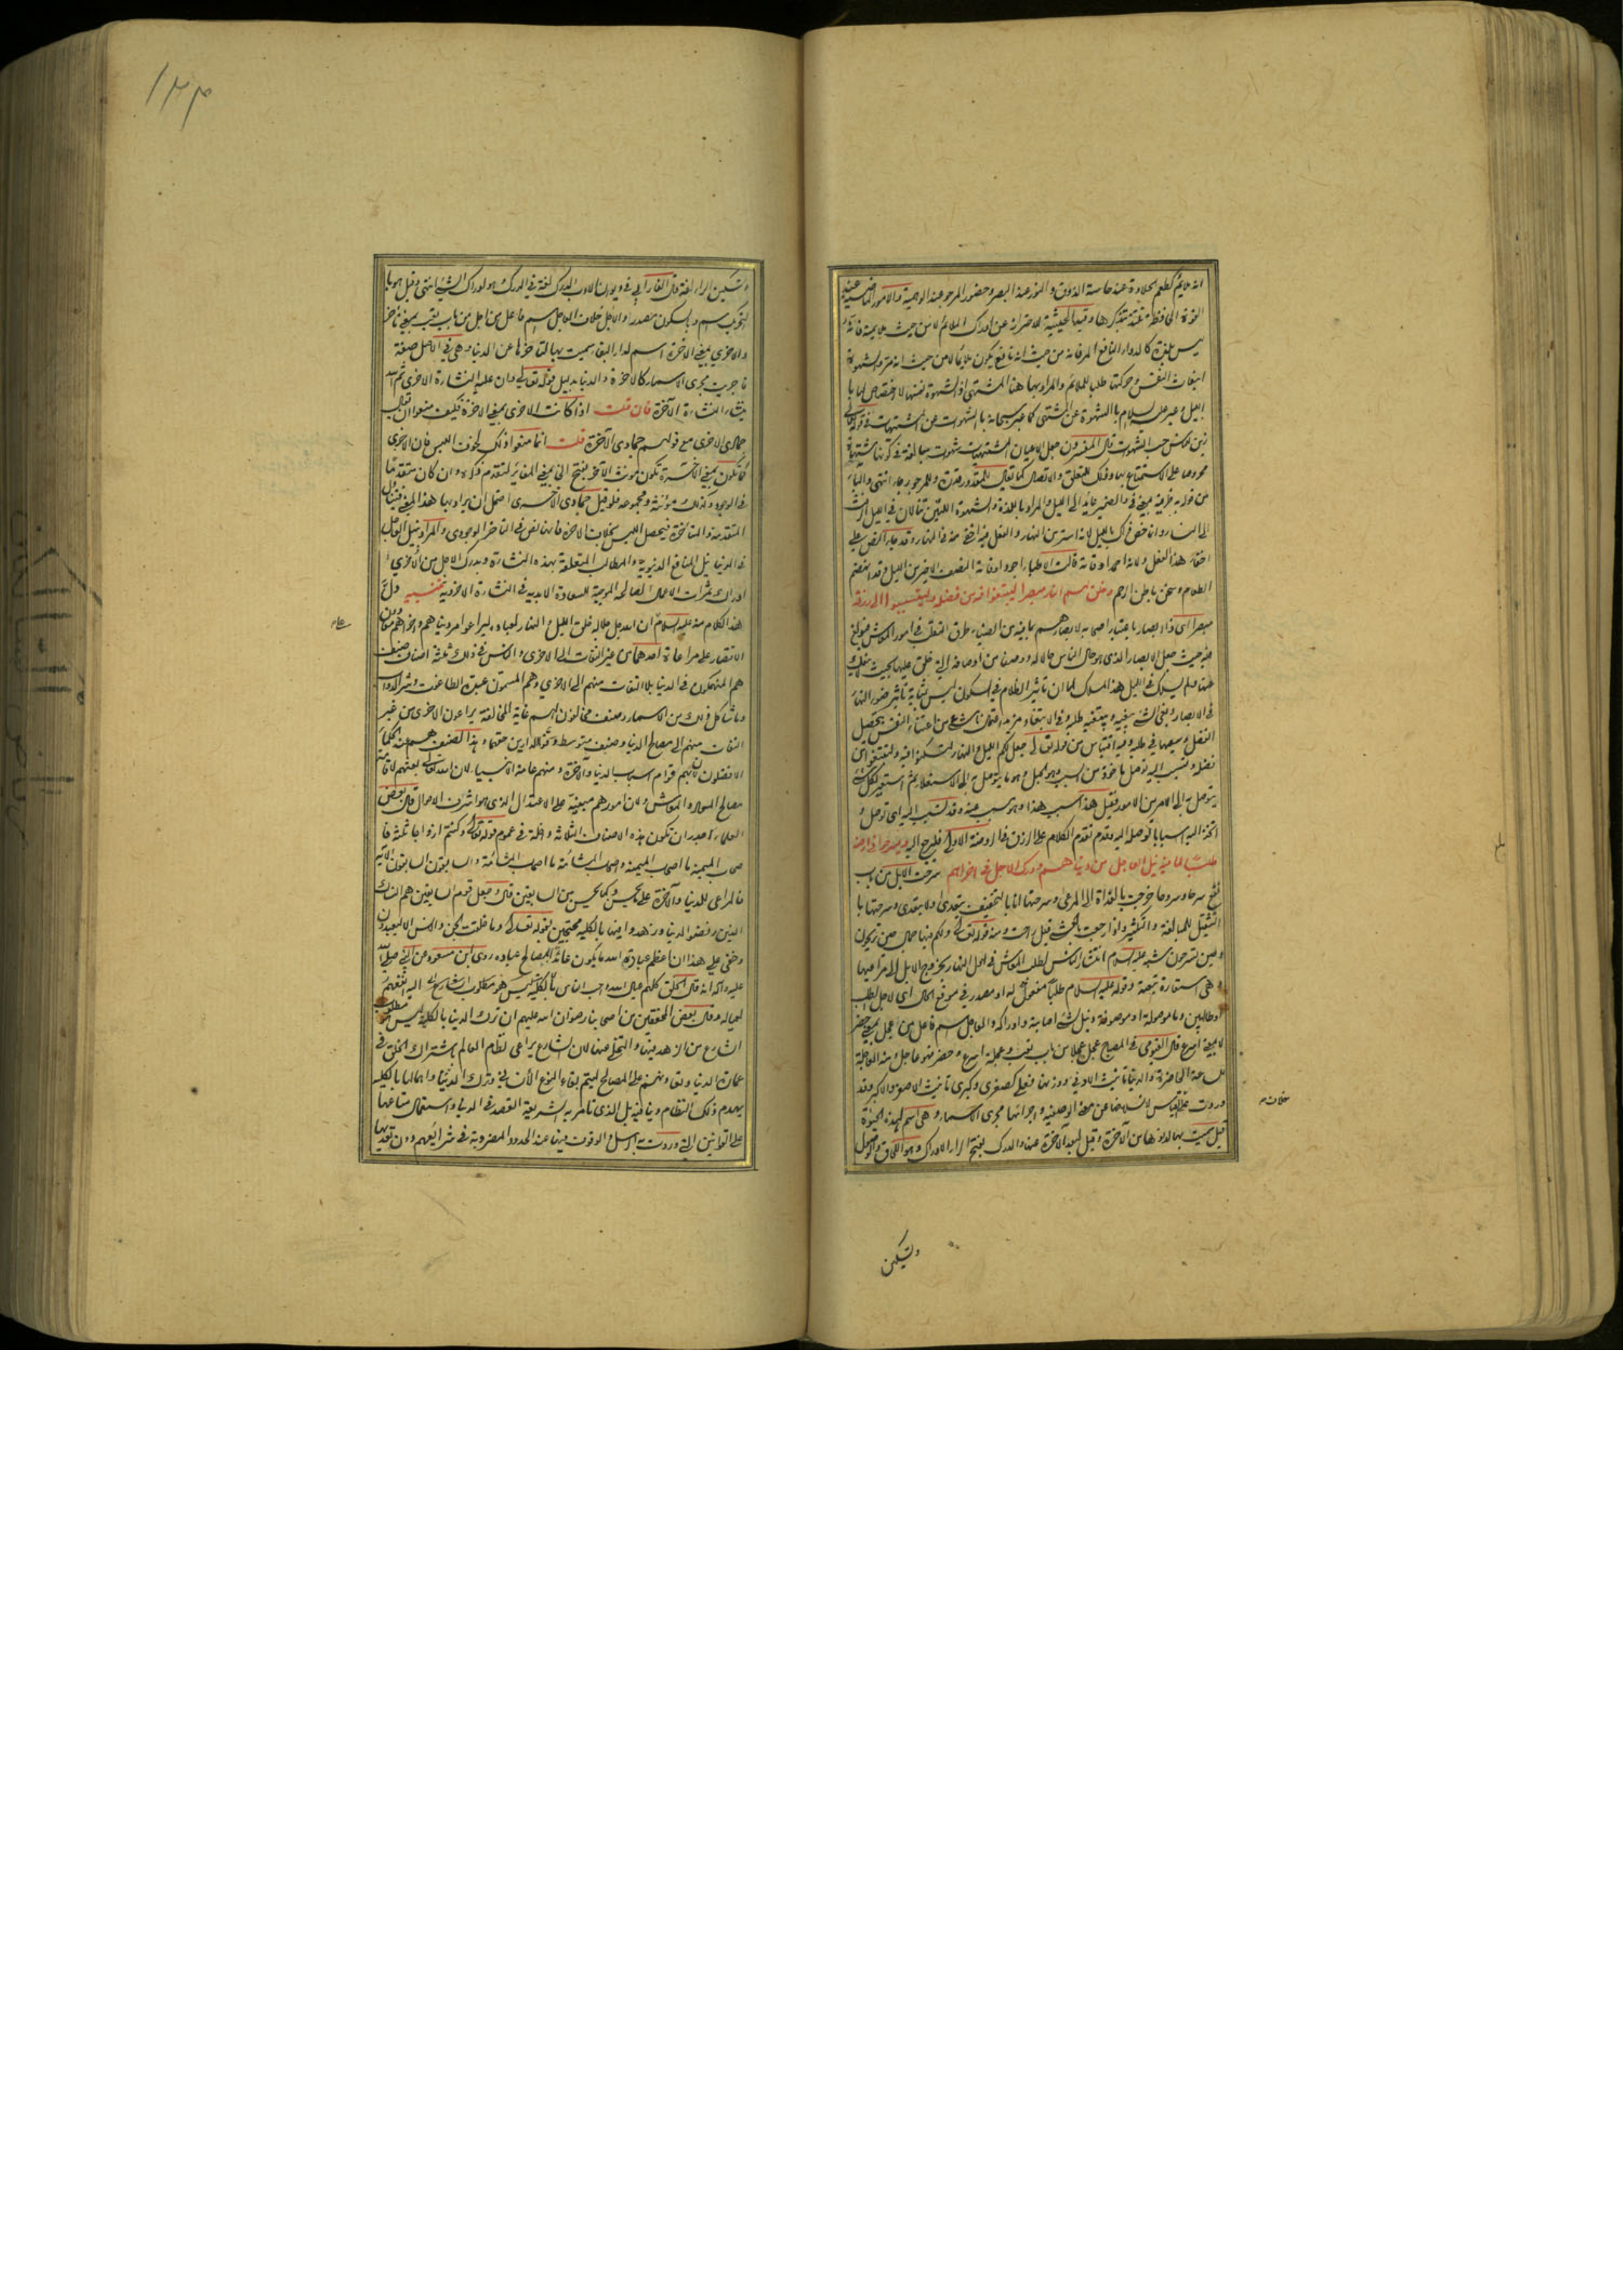 انه ملايم كطعم الحلاوة عند حاسة الذوق والنور عند البصر وحضور المرجو عند الوهمية والامور الماضية عند
القوة الحافظة تلتذ بتذكرها وقيد الحيثية للاحتراز عن ادراك الملائم لا من حيث ملايمته فانه
ليس بلذة كالدواء النافع المر فانه من حيث انه نافع يكون ملايما لا من حيث انه مر والشهوة
انبعاث النفس وحركتها طلبا للملائم والمراد بها هنا المشتهى اذ الشهوة نفسها لا اختصاص لها با
الليل وعبر عليه السلام بالشهوة عن المشتهى كما عبر سبحانه بالشهوات عن المشتهيات في قوله تعالى
زين للناس حب الشهوات قال المفسرون جعل الاعيان المشتهيات شهوات مبالغة في كونها مشتهاة
محروصا على الاستمتاع بها وذلك للتعلق والاتصال كما يقال للمقدور قدرة وللمرجو رجاء انتهى والباء
من قوله به ظرفية بمعنى في والضمير عائد الى الليل والمراد باللذة والشهوة اللتين تنالان في الليل
الى النساء وانما خص ذلك بالليل لانه استر من النهار والفعل فيه اخفى منه في النهار وقد جاء النص على
اخفاء هذا الفعل ولانه احمد اوقاته قالت الاطباء اجود اوقاته النصف الاخير من الليل وقد انهضم
الطعام وسخن باطن الرحم وخلق لهم النهار مبصرا ليبتغوا فيه من فضله وليتسببوا الى رزقه
مبصرا اى ذا ابصار باعتبار اصحابه لابصارهم ما فيه من الضياء طرق التقلب في امور المعاش فبولغ
فيه حيث جعل الابصار الذى هو حال الناس حالا له ووصفا من اوصافه التي خلق عليها بحيث لا ينفك
عنها ولم يسلك في الليل هذا المسلك لما ان تاثير الظلام في السكون ليس بمثابة تاثير ضوء النهار
في الابصار وبغى الشيء يبغيه ويبتغيه طلبه وفي الابتغاء مزيد اعتمال ناش من اعتناء النفس بتحصيل
الفضل وسعيها في طلبه وفيه اقتباس من قوله تعالى جعل لكم الليل والنهار لتسكنوا فيه ولتبتغوا من
فضله وتسبب اليه توصل ماخوذ من السبب وهو الحبل وهو ما يتوصل به الى الاستعلاء ثم استعير لكل شيء
يتوصل به الى امر من الامور فقيل هذا سبب هذا وهو مسبب عنه وقد تسبب اليه اى توصل او
اتخذ اليه اسبابا توصله اليه وقد تقدم الكلام على الرزق في الروضة الاولى فليرجع اليه ويسرحوا في ارضه
طلبا لما فيه نيل العاجل من دنياهم ودرك الاجل في اخراهم سرحت الابل من باب
نفع سرحا وسروحا خرجت بالغداة الى المرعى وسرحتها انا بالتخفيف يتعدى ولا يتعدى وسرحتها با
لتثقيل للمبالغة والتكثير واذا رجعت بالعشي قيل راحت ومنه قوله تعالى ولكم فيها جمال حين تريحون
وحين تسرحون شبه عليه السلام انتشار الناس لطلب المعاش في اول النهار بخروج الابل الى مراعيها
وهى استعارة تبعية وقوله عليه السلام طلبا مفعول له او مصدر في موقع الحال اى لاجل الطلب
او طالبين وما موصولة او موصوفة ونيل الشيء اصابته وادراكه والعاجل اسم فاعل من عجل بمعنى حضر
لا بمعنى اسرع قال الفيومى في المصباح عجل عجلا من باب تعب وعجلة اسرع وحضر فهو عاجل ومنه العاجلة
للساعة الحاضرة والدنيا تانيث الادنى ووزنها فعلى كصغرى وكبرى تانيث الاصغر والاكبر وقد
وردت على القياس لانسلاخها عن معنى الوصفية واجرائها مجرى الاسماء وهى اسم لهذه الحيوة
قيل سميت بها لدنوها من الآخرة وقيل لبعد الآخرة عنها والدرك بفتح الراء الادراك وهو اللحاق والوصول
وتسكين
خلاف
وتسكين الراء لغة وقال الفارابي في ديوان الادب الدرك لغة في الدرك وهو ادراك الشيء انتهى وقيل هو با
لتحريك اسم وبالسكون مصدر والاجل خلاف العاجل اسم فاعل من اجل من باب تعب بمعنى تاخر
والاخرى بمعنى الآخرة اسم لدار البقاء سميت بها لتاخرها عن الدنيا وهى في الاصل صفة
فاجريت مجرى الاسماء كالآخرة والدنيا بدليل قوله تعالى وان عليه النشاءة الاخرى ثم الله
ينشئ النشاءة الآخرة فان قلت اذا كانت الاخرى بمعنى الآخرة فكيف منعوا ان يقال
جمادى الاخرى مع قولهم جمادى الآخرة قلت انما منعوا ذلك لخوف اللبس فان الاخرى
كما تكون بمعنى الآخرة تكون مونث الآخر بفتح الخاء بمعنى المغاير لمتقدم ذكره وان كان متقدما
في الوجود وكذلك مؤنثه ومجموعه فلو قيل جمادى الاخرى احتمل ان يراد بها هذا المعنى فيتناول
المتقدمة والمتاخرة فيحصل اللبس بخلاف الآخرة فانها نص في التاخر الوجودى والمراد بنيل العاجل
في الدنيا نيل المنافع الدنيوية والمطالب المتعلقة بهذه النشاءة وبدرك الاجل من الاخرى ا
ادراك ثمرات الاعمال الصالحة الموجبة للسعادة الابدية في النشاءة الاخروية تنبيه دل
هذا الكلام منه عليه السلام ان الله جل جلاله خلق الليل والنهار لعباده ليراعوا امر دنياهم واخراهم معا دون
الاقتصار على مراعاة احدهما من غير التفات الى الاخرى والناس في ذلك ثلثة اصناف صنف
هم المنهمكون في الدنيا بلا التفات منهم الى الاخرى وهم المسمون عبدة الطاغوت وشر الدواب
وما شاكل ذلك من الاسماء وصنف مخالفون لهم غاية المخالفة يراعون الاخرى من غير
التفات منهم الى مصالح الدنيا وصنف متوسط وفوا الدارين حقهما وهذا الصنف هم عند الحكماء
الافضلون لان بهم قوام اسباب الدنيا والآخرة ومنهم عامة الانبياء لان الله تعالى بعثهم لاقامة
مصالح المعاد والمعاش ولان امورهم مبنية على الاعتدال الذى هو اشرف الاحوال قال بعض
العلماء واجدر ان تكون هذه الاصناف الثلاثة داخلة في عموم قوله تعالى وكنتم ازواجا ثلثة فا
صحاب الميمنة ما اصحاب الميمنة واصحاب المشأمة ما اصحاب المشأمة والسابقون السابقون الآية
فالمراعى للدنيا والآخرة على ما يحس وكما يحس من السابقين قال وجعل قوم السابقين هم النساك
الذين رفضوا الدنيا وزهدوا فيها بالكلية محتجين بقوله تعالى وما خلقت الجن والانس الا ليعبدون
وخفى على هذا ان اعظم عبادة الله ما يكون عائدا بمصالح عباده روى ابن مسعود عن النبي صلى الله
عليه وآله انه قال الخلق كلهم عيال الله واحب الناس اليه انفعهم
لعياله وقال بعض المحققين من اصحابنا رضوان الله عليهم ان ترك الدنيا بالكلية ليس هو مطلوب
الشارع من الزهد فيها والتخلي عنها لان الشارع يراعى نظام العالم باشتراك الخلق في
عمارة الدنيا وتعاونهم على المصالح ليتم بقاء النوع الانساني وترك الدنيا واهمالها بالكلية
يهدم ذلك النظام وينافيه بل الذى تامر به الشريعة القصد في الدنيا واستعمال متاعها
على القوانين التي وردت به الرسل والوقوف فيها عند الحدود المضروبة في شرائعهم دون تعديها